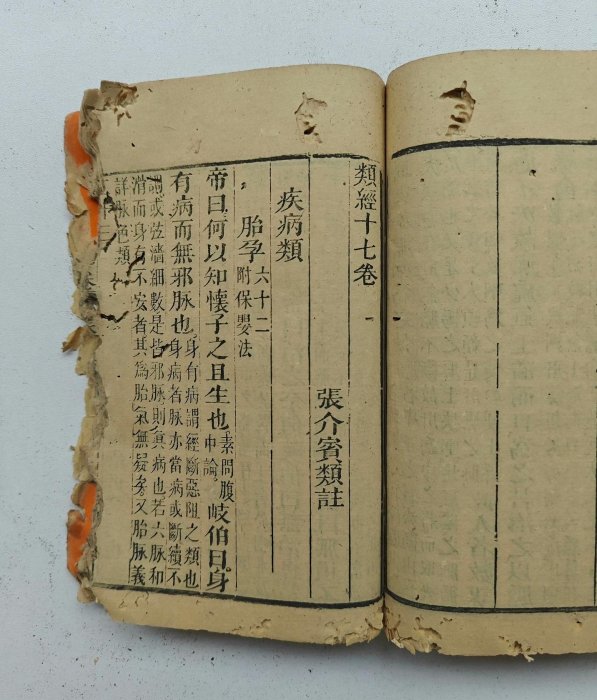 類經十七卷
張介賓類註
疾病類
胎孕六十二
附保嬰法
帝曰何以知懷子之且生也素問腹中論。岐伯曰身
有病而無邪脉也身有病謂經斷惡阻之類也
身病者脉亦當病或斷續不
調或弦濇細數是皆邪脉則眞病也若六脉和
滑而身有不安者其爲胎氣無疑矣又胎脉義
詳脉色類